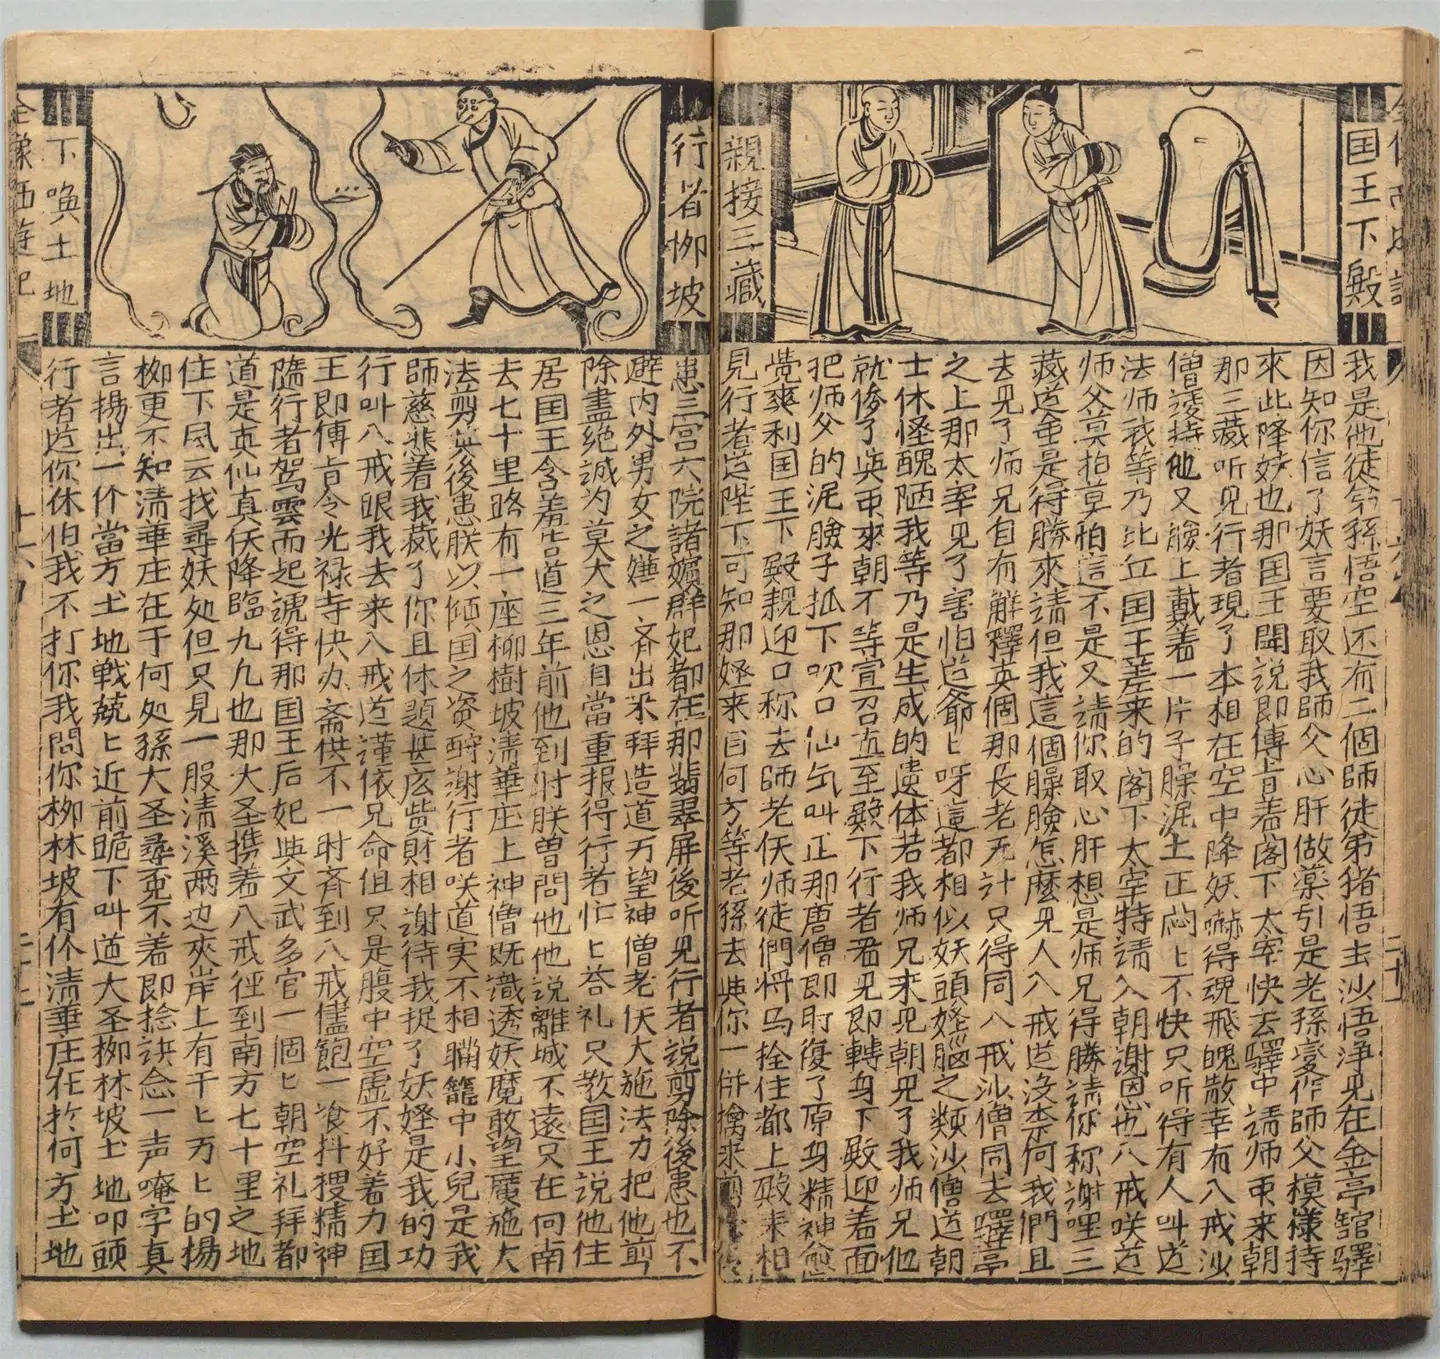 国王下殿
親接三藏
我是他徒弟孫悟空还有二個師徒弟猪悟去沙悟浄見在金亭舘驛
因知你信了妖言要取我師父心肝做薬引是老孫変作師父模様待
來此降妖也那国王聞説即傳旨着閣下太宰快去驛中請师弔来朝
那三藏听見行者現了本相在空中降妖嚇得魂飛魄散幸有八戒沙
僧護持他又臉上戴着一片子臊泥土正悶上不快只听得有人叫道
法师我等乃比丘国王差来的閣下太宰特請入朝謝恩也八戒咲道
师父莫怕莫怕這不是又請你取心肝想是师兄得勝請你称謝哩三
藏道金是得勝來請但我這個臊臉怎麽見人八戒道没奈何我們且
去見了师兄自有解釋英個那長老无計只得同八戒沙僧同去驛亭
之上那太宰見了害怕道爺ヒ呀這都相似妖頭怪腦之類沙僧道朝
士休怪醜陋我等乃是生成的遺体若我师兄来見朝見了我师兄他
就俊了與弔來朝不等宣召直至殿下行者看見即轉身下殿迎着面
把师父的泥臉子抓下吹口仙气叫正那唐僧即时復了原身精神愈
覺爽利国王下殿親迎口称去师老仸师徒們将马拴住都上殿来相
見行者道陛下可知那怪来自何方等老孫去與你一併擒来剪
行者柳坡
下喚土地
患三宫六院諸嬪群妃都在那翡翠屏後听見行者説剪除後患也不
避内外男女之嫌一斉出来拜造道万望神僧老仸大施法力把他剪
除盡絶誠为莫大之恩自當重报得行行者忙ヒ答礼只教国王説他住
居国王含羞告道三年前他到时朕曾問他他説離城不遠只在何南
去七十里路有一座柳樹坡清華庄上神僧既識透妖魔敢望廣施大
法剪其後患朕以傾国之资酧谢行者咲道实不相瞞籠中小兒是我
師慈悲着我藏了你且休題甚広貲財相謝待我捉了妖怪是我的功
行叫八戒眼我去来八戒道謹依兄命但只是腹中空虚不好着力国
王即傳旨令光禄寺快办斎供不一时斉到八戒儘飽一飡抖搜精神
隨行者駕雲而起諕得那国王后妃與文武多官一個ヒ朝空礼拜都
道是真仙真仸降臨九九也那大圣携着八戒徑到南方七十里之地
住下风云找尋妖处但只見一股清溪两边夾岸上有千ヒ万ヒ的楊
柳更不知清華庄在于何処孫大圣尋覔不着即捻訣念一声唵字真
言揚出一个當方土地戰兢ヒ近前跪下叫道大圣柳林坡土地叩頭
行者道你休怕我不打你我問你柳林坡有个清華庄在扵何方土地
全像西遊記